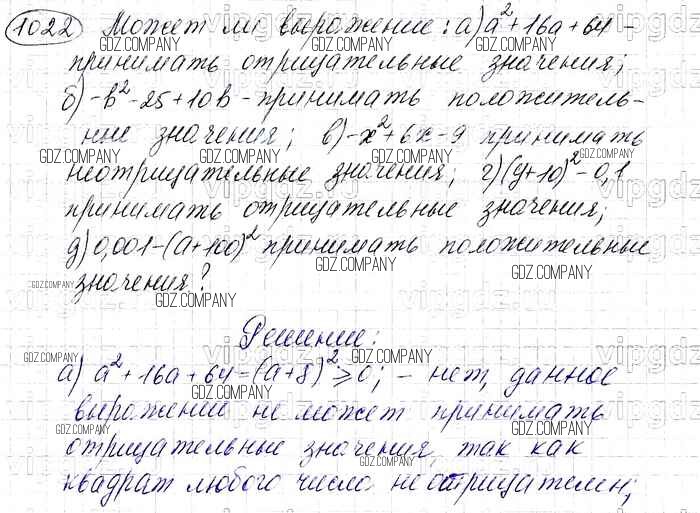 1022 Может ли выражение: а) a²+16a+64 -
принимать отрицательные значения;
б) -b²-25+10b - принимать положитель-
ные значения; в) -x²+6x-9 принимать
неотрицательные значения; г) (y+10)²-0,1
принимать отрицательные значения;
д) 0,001-(a+100)² принимать положительные
значения?
Решение:
а) a²+16a+64-(a+8)²⩾0; - нет, данное
выражение не может принимать
отрицательные значения, так как
квадрат любого число неотрицателен;